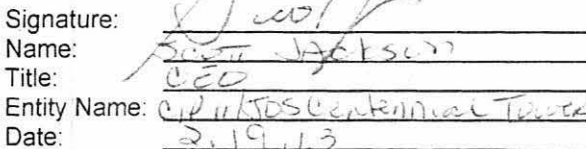 Signature:
Name: Scott Jackson
Title: CEO
Entity Name: Centennial Tower
Date: 2.19.13